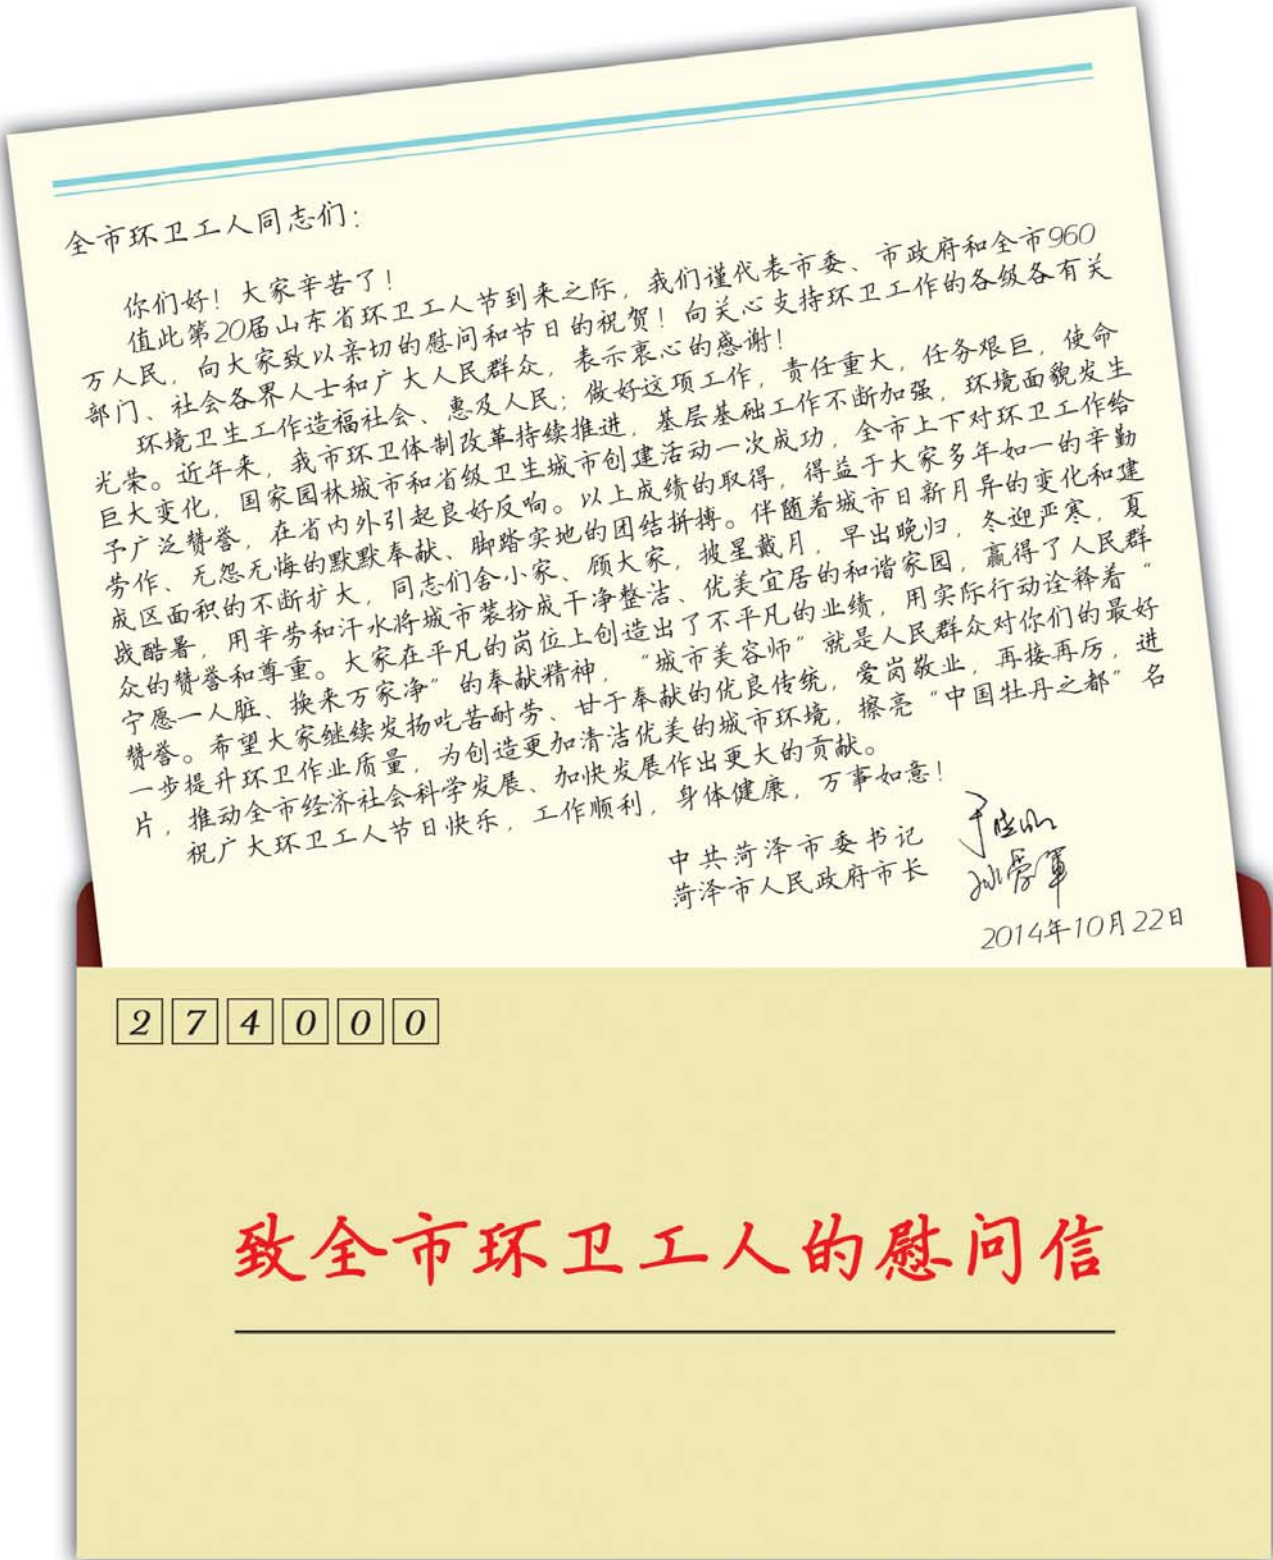 全市环卫工人同志们：
你们好！大家辛苦了！
值此第20届山东省环卫工人节到来之际，我们谨代表市委、市政府和全市960
万人民，向大家致以亲切的慰问和节日的祝贺！向关心支持环卫工作的各级各有关
部门、社会各界人士和广大人民群众，表示衷心的感谢！
环境卫生工作造福社会、惠及人民；做好这项工作，责任重大，任务艰巨，使命
光荣。近年来，我市环卫体制改革持续推进，基层基础工作不断加强，环境面貌发生
巨大变化，国家园林城市和省级卫生城市创建活动一次成功，全市上下对环卫工作给
予广泛赞誉，在省内外引起良好反响。以上成绩的取得，得益于大家多年如一的辛勤
劳作、无怨无悔的默默奉献、脚踏实地的团结拼搏。伴随着城市日新月异的变化和建
成区面积的不断扩大，同志们舍小家、顾大家，披星戴月，早出晚归，冬迎严寒，夏
战酷暑，用辛劳和汗水将城市装扮成干净整洁、优美宜居的和谐家园，赢得了人民群
众的赞誉和尊重。大家在平凡的岗位上创造出了不平凡的业绩，用实际行动诠释着“
宁愿一人脏、换来万家净”的奉献精神，“城市美容师”就是人民群众对你们的最好
赞誉。希望大家继续发扬吃苦耐劳、甘于奉献的优良传统，爱岗敬业，再接再厉，进
一步提升环卫作业质量，为创造更加清洁优美的城市环境，擦亮“中国牡丹之都”名
片，推动全市经济社会科学发展、加快发展作出更大的贡献。
祝广大环卫工人节日快乐，工作顺利，身体健康，万事如意！
中共菏泽市委书记
菏泽市人民政府市长 孙爱军
2014年10月22日
274000
致全市环卫工人的慰问信